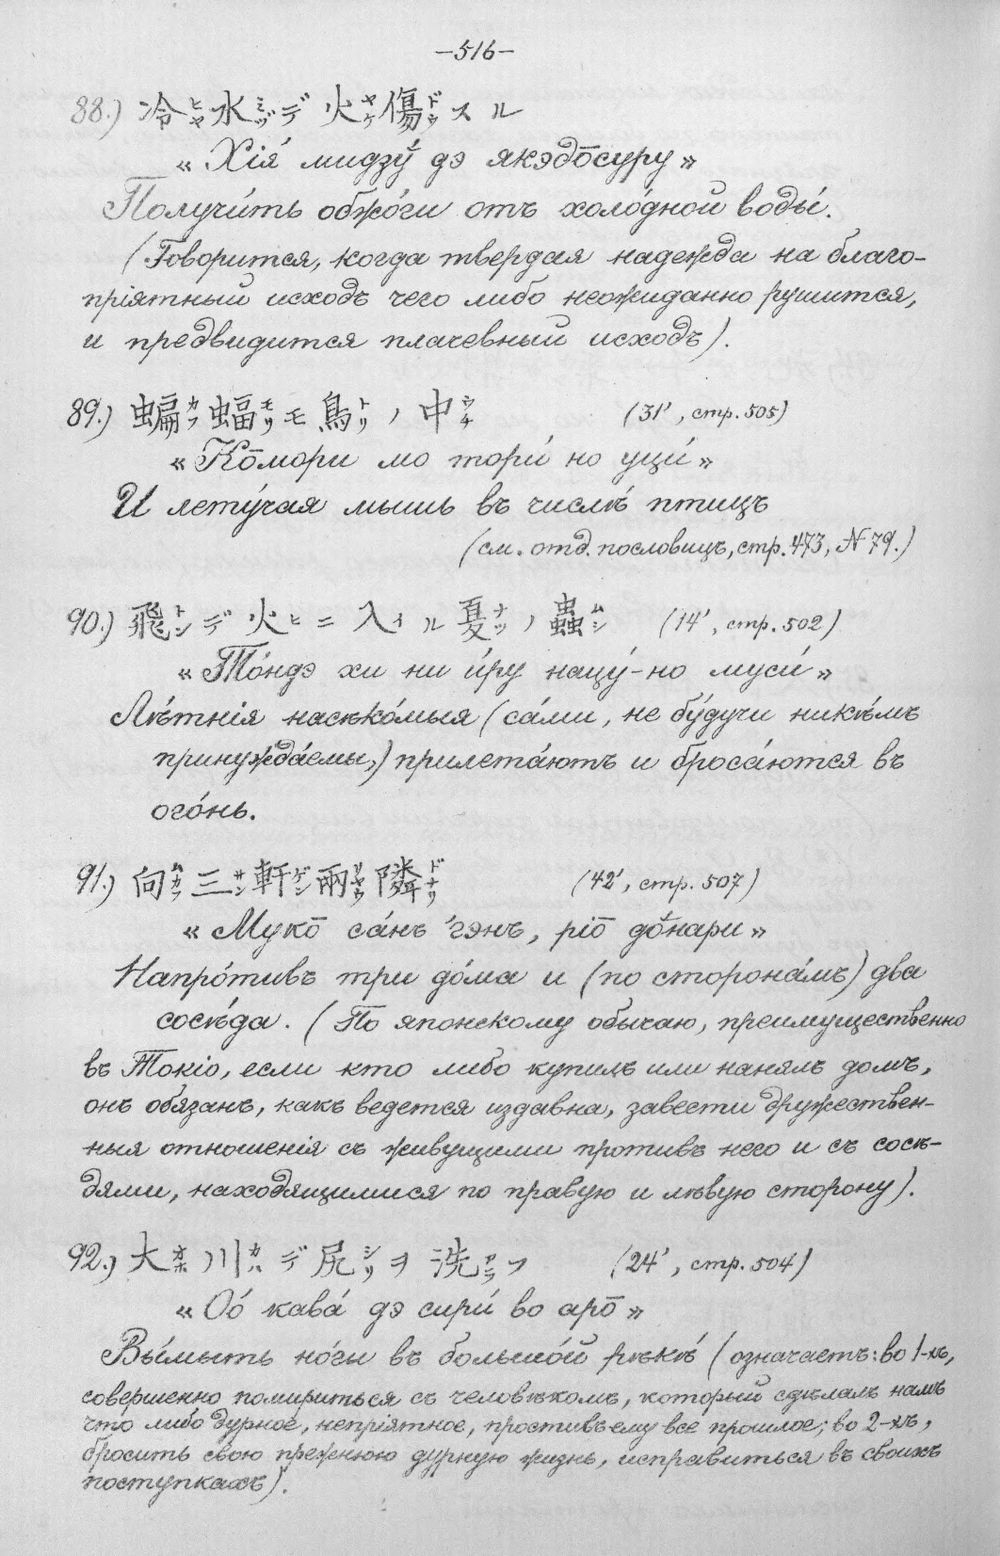 –516–
88.) 冷ヒヤ水ミヅデ 火ヤケ傷ドウスル
« Хія́ мидзу́ дэ якэдо̄суру »
Получи́ть обжо́ги отъ холо́дной воды́.
(Говорится, когда твердая надежда на благо-
пріятный исходъ чего либо неожиданно рушится,
и предвидится плачевный исходъ).
89.) 蝙カフ蝠モリモ鳥トリノ中ウチ (31', стр. 505)
« Ко̄мори мо тори́ но уци́ »
И лету́чая мышь въ числѣ́ птицъ
(см. отд. пословицъ, стр. 473, N 79.)
90.) 飛トンデ火ヒニ入イル夏ナツノ蟲ムシ (14', стр. 502)
« То́ндэ хи ни и́ру нацу́-но муси́ »
Лѣ́тнія насѣко́мыя (са́ми, не бу́дучи никѣ́мъ
принужда́емы,) прилета́ютъ и броса́ются въ
ого́нь.
91.) 向ムカフ三サン軒ゲン兩リヤウ隣ドナリ (42', стр. 507)
« Муко̄ са́нъ 'гэнъ, ріо̄ до́нари »
Напро́тивъ три до́ма и (по сторона́мъ) два
сосѣ́да. (По японскому обычаю, преимущественно
въ Токіо, если кто либо купилъ или нанялъ домъ,
онъ обязанъ, какъ ведется издавна, завести дружествен-
ныя отношенія съ живущими противъ него и съ сосѣ-
дями, находящимися по правую и лѣвую сторону).
92.) 大オホ川カハデ尻シリヲ洗アラフ (24', стр. 504)
« Оо́ кава́ дэ сири́ во аро̄ »
Вы́мыть но́ги въ большо́й рѣкѣ́ (означаетъ: во 1-хъ,
совершенно помириться съ человѣкомъ, который сдѣлалъ намъ
что либо дурное, непріятное, простивъ ему все прошлое; во 2-хъ,
бросить свою прежнюю дурную жизнь, исправиться въ своихъ
поступкахъ).